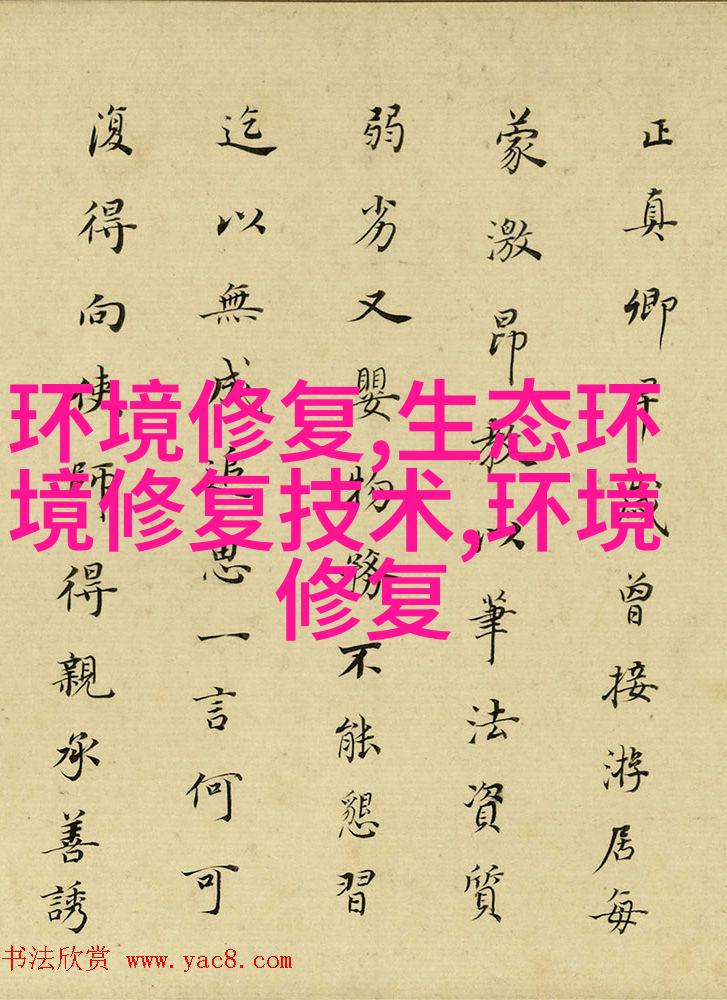 正真卿早歲曾接游居每
蒙激昂教以筆法資質
弱劣又嬰物務不能懇習
迄以無成追思一言何可
復得向使師得親承善誘
环境修复,生态环
境修复技术,环境
修复
书法欣赏 www.yac8.com